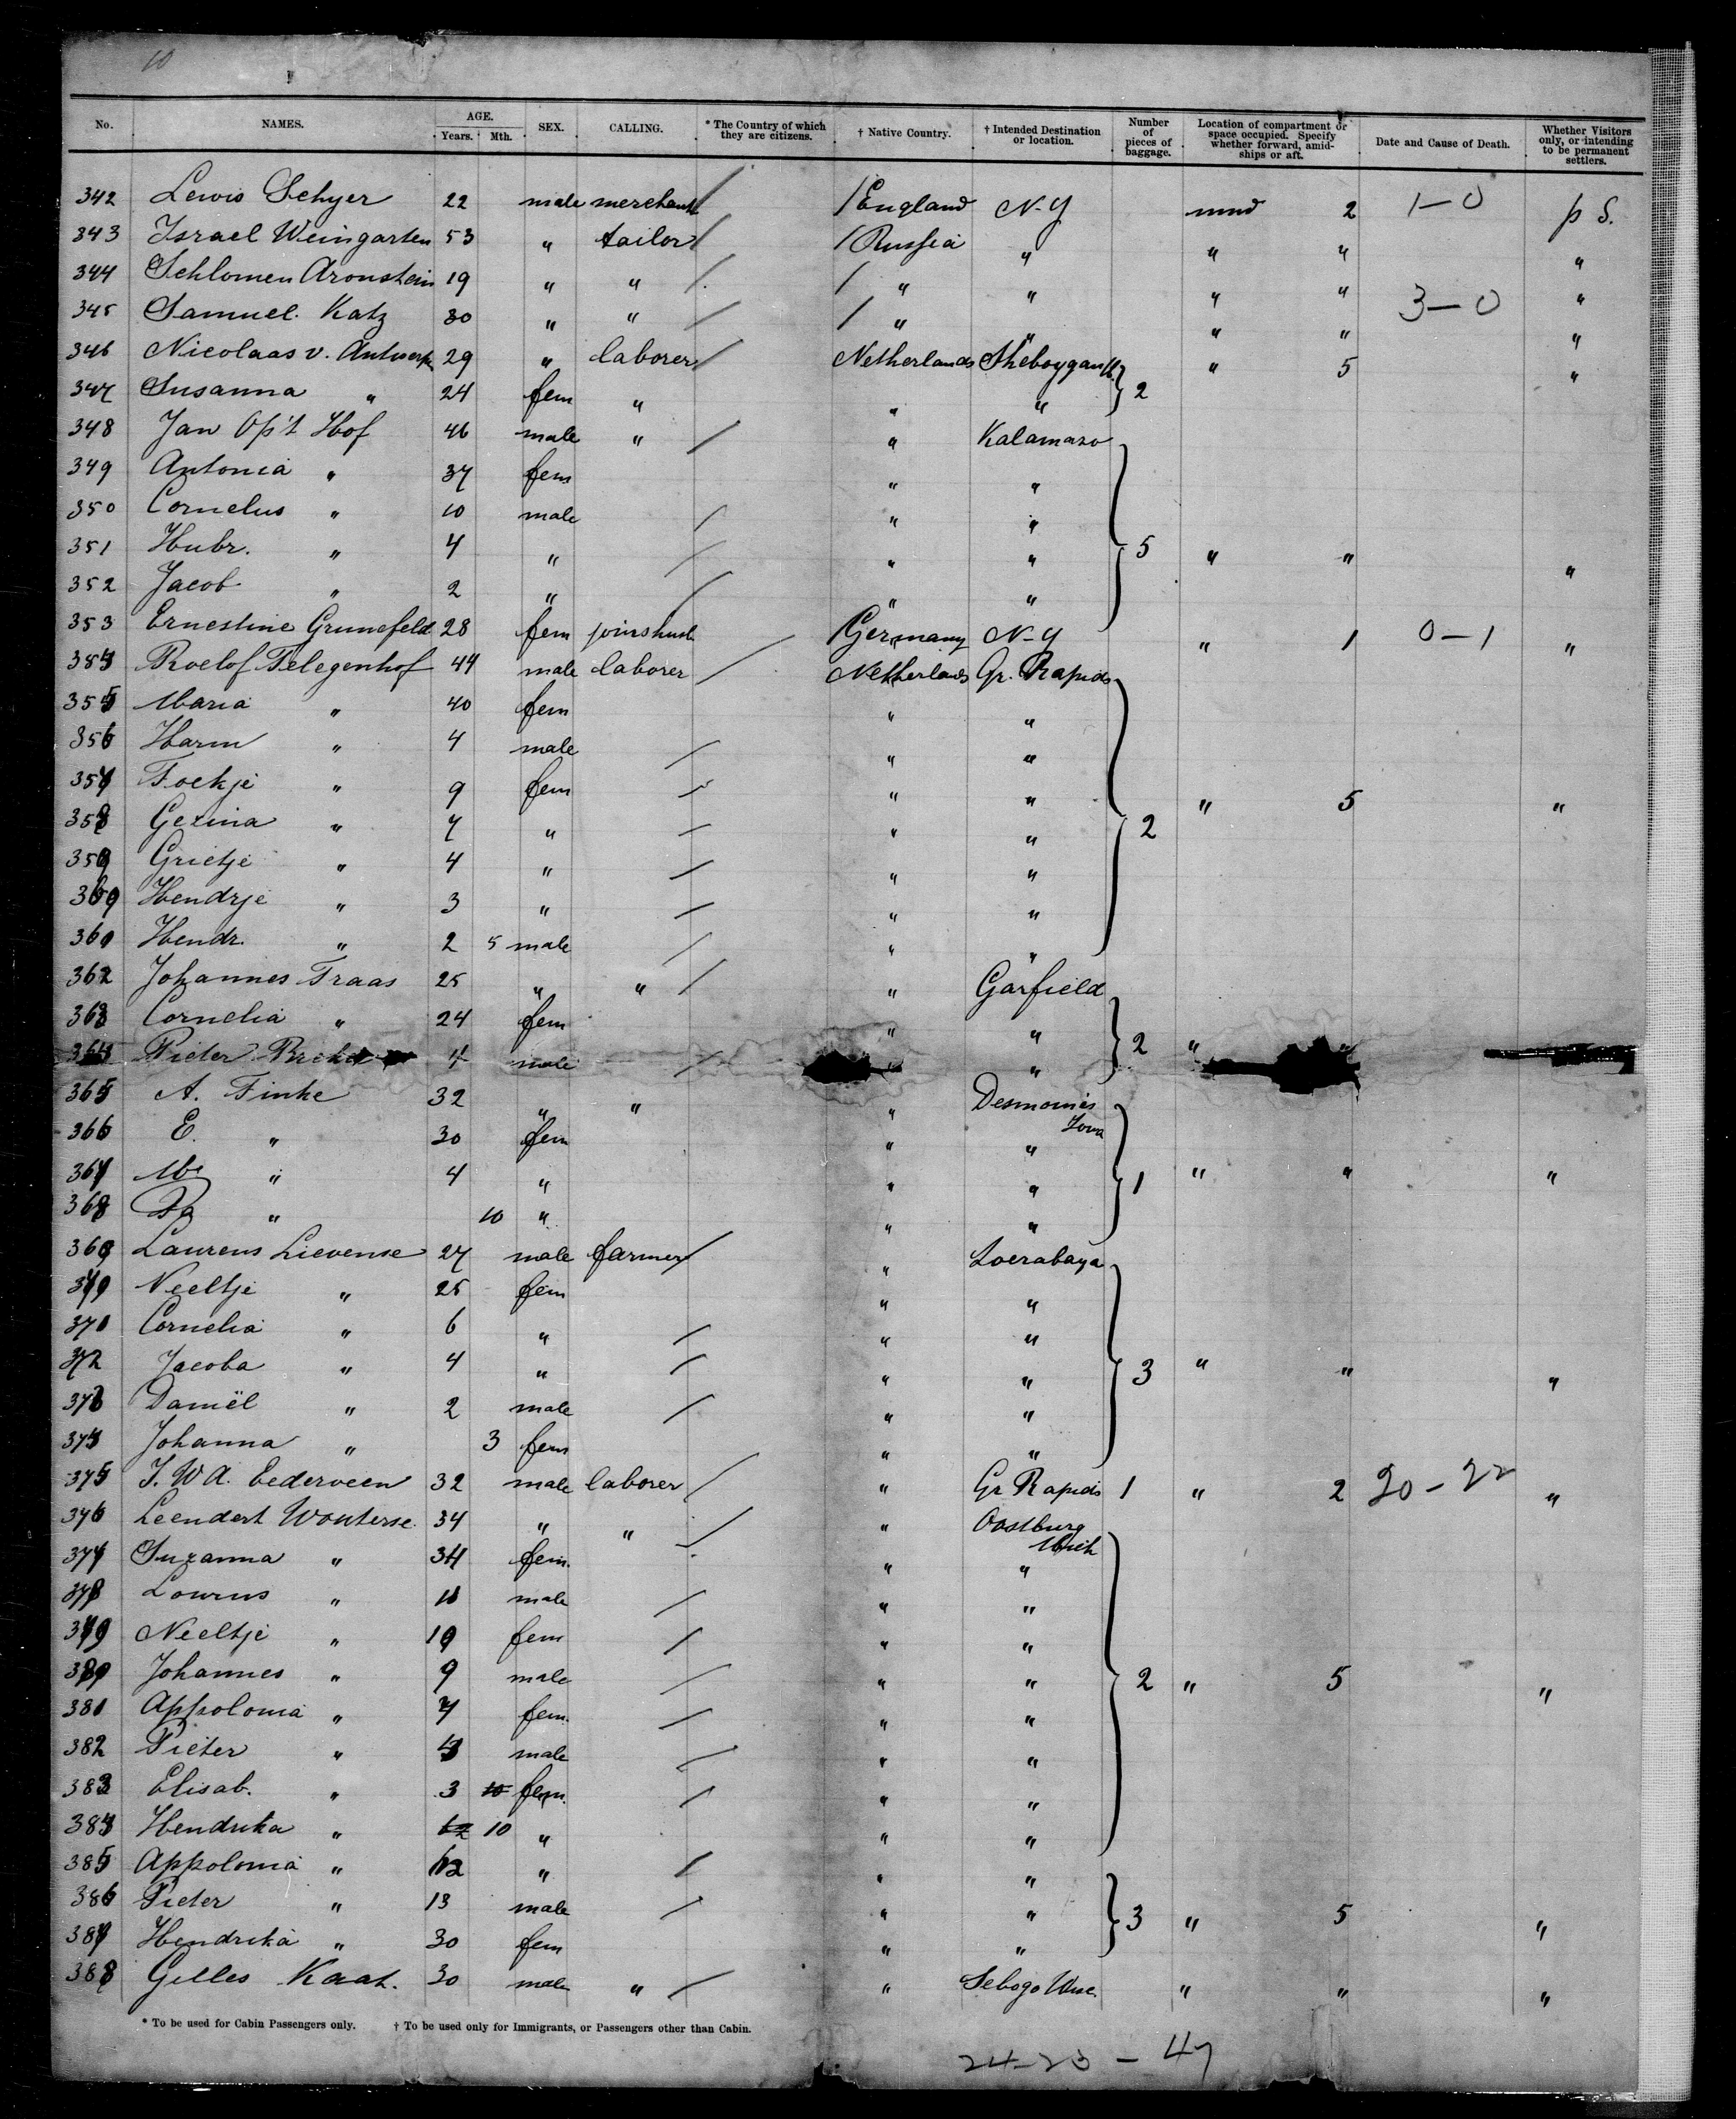 10
No. NAMES. AGE. Years. Mth. SEX. CALLING. * The Country of which they are citizens. † Native Country. † Intended Destination or location. Number of pieces of baggage. Location of compartment or space occupied. Specify whether forward, amid-ships or aft. Date and Cause of Death. Whether Visitors only, or intending to be permanent settlers.
342 Lewis Schyer 22 male merchant / / England N-Y mnd 2 1-0 p S.
343 Israel Weingarten 53 " tailor / / Russia " " " "
344 Schlomen Aronstein 19 " " / / " " " " "
345 Samuel Katz 30 " " / / " " " " 3-0 "
346 Nicolaas v. Antwerp 29 " laborer / Netherlands Sheboygan " 5 "
347 Susanna " 24 fem " " " 2
348 Jan Op't Hof 46 male " / " Kalamazo
349 Antonia " 37 fem " "
350 Cornelus " 10 male / " "
351 Hubr. " 4 " / " " 5 " " "
352 Jacob " 2 " / " "
353 Ernestine Grunefeld 28 fem joins husb. / / Germany N-Y " 1 0-1 "
354 Roelof Telegenhof 44 male laborer / Netherlands Gr. Rapids
355 Maria " 40 fem " "
356 Harm " 4 male / " "
357 Foekje " 9 fem / " " " 5 "
358 Gezina " 7 " / " " 2
359 Grietje " 4 " / " "
360 Hendrje " 3 " / " "
361 Hendr. " 2 5 male / " "
362 Johannes Traas 25 " " / " Garfield
363 Cornelia " 24 fem " " 2 "
364 Pieter 4 male / "
365 A. Finke 32 " " " Desmoines Iowa
366 E. " 30 fem " "
367 " 4 " " " 1 " " "
368 " 10 " " "
369 Laurens Lievense 27 male farmer / " Soerabaya
370 Neeltje " 25 fem " "
371 Cornelia " 6 " / " "
372 Jacoba " 4 " / " " 3 " " "
373 Daniël " 2 male / " "
374 Johanna " 3 fem " "
375 J. W A. Eederveen 32 male laborer / " Gr Rapids 1 " 2 20-22 "
376 Leendert Wouterse 34 " " / " Oostburg Mich
377 Suzanna " 34 fem. " "
378 Lourus " 11 male / " "
379 Neeltje " 10 fem / " "
380 Johannes " 9 male / " " 2 " 5 "
381 Appolonia " 7 fem. / " "
382 Pieter " 4 male / " "
383 Elisab. " 3 10 fem. / " "
384 Hendrika " 10 " " "
385 Appolonia " 62 " / " "
386 Pieter " 13 male / " " 3 " 5 "
387 Hendrika " 30 fem " "
388 Gilles Kaat. 30 male " / " Sebogo Wisc. " " "
* To be used for Cabin Passengers only. † To be used only for Immigrants, or Passengers other than Cabin.
24-23 - 47